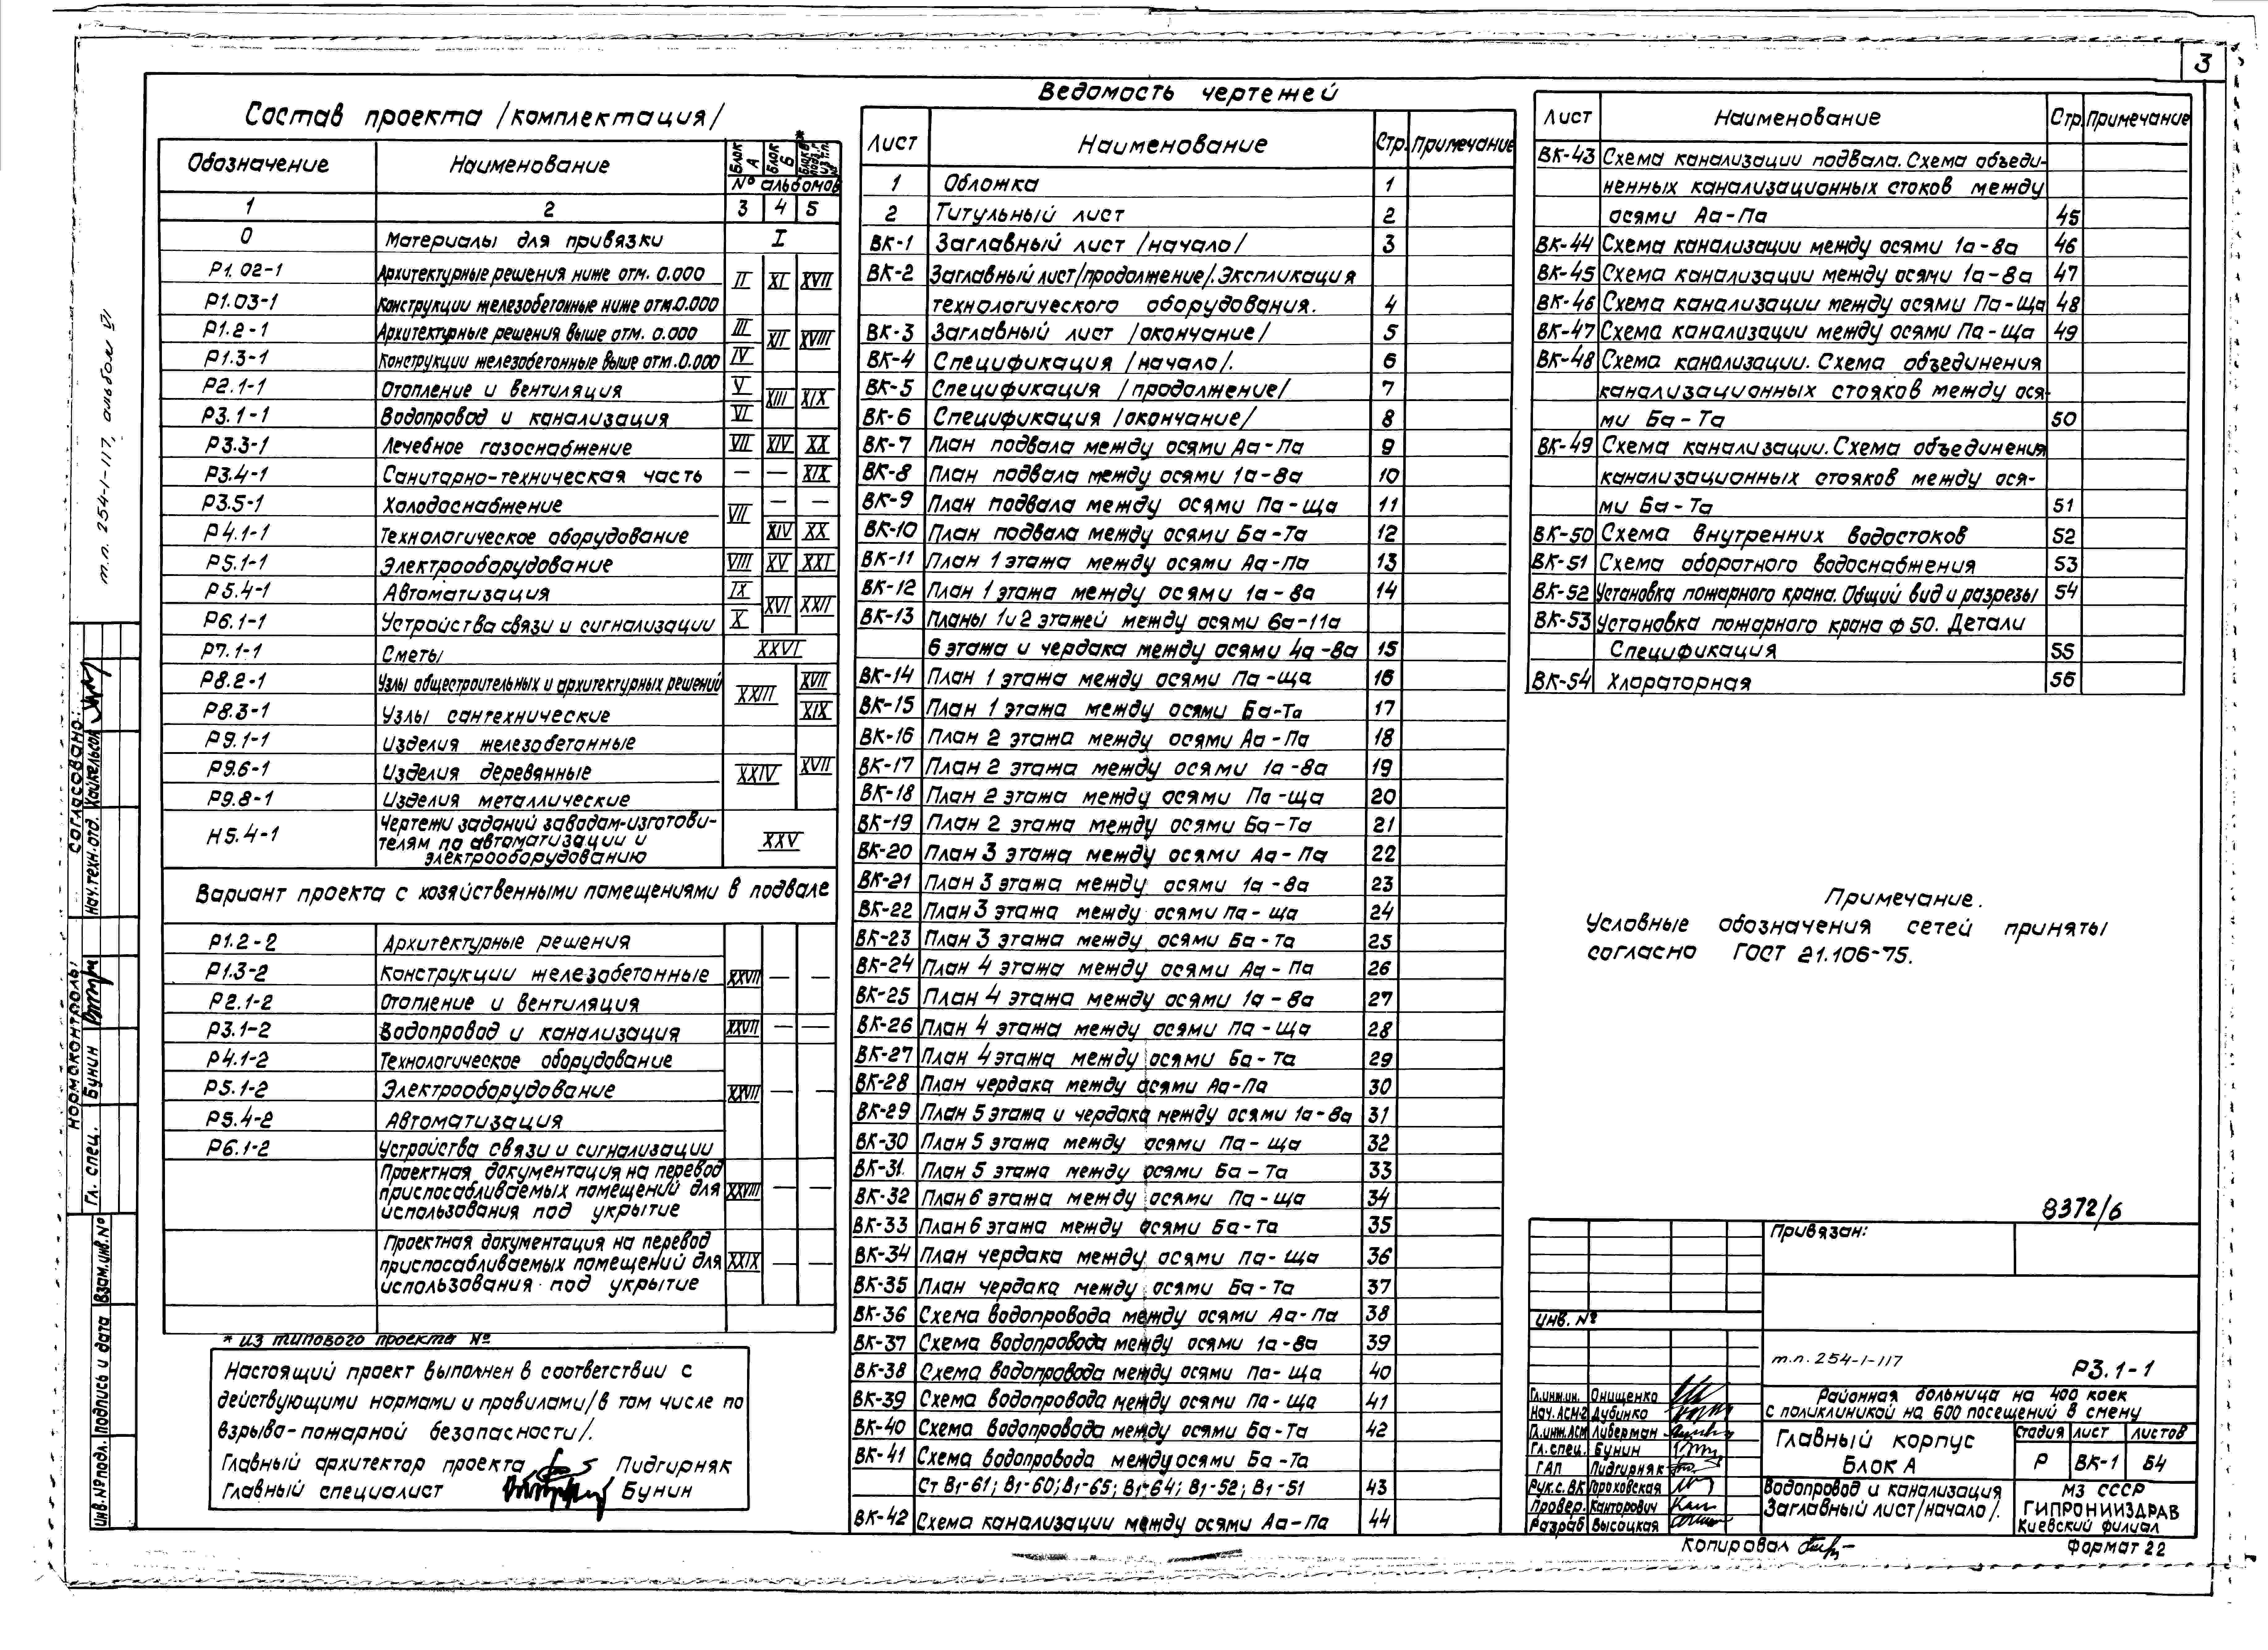 3
Состав проекта /комплектация/
Обозначение Наименование Блок А Блок Б
№ альбомов
1 2 3 4 5
0 Материалы для привязки I
Р1.02-1 Архитектурные решения ниже отм. 0.000 II XI XVII
Р1.03-1 Конструкции железобетонные ниже отм.0.000
Р1.2-1 Архитектурные решения выше отм. 0.000 III XII XVIII
Р1.3-1 Конструкции железобетонные выше отм.0.000 IV
Р2.1-1 Отопление и вентиляция V XIII XIX
Р3.1-1 Водопровод и канализация VI
Р3.3-1 Лечебное газоснабжение VII XIV XX
Р3.4-1 Санитарно-техническая часть — — XIX
Р3.5-1 Холодоснабжение VII — —
Р4.1-1 Технологическое оборудование XIV XX
Р5.1-1 Электрооборудование VIII XV XXI
Р5.4-1 Автоматизация IX XVI XXII
Р6.1-1 Устройства связи и сигнализации X
Р7.1-1 Сметы XXVI
Р8.2-1 Узлы общестроительных и архитектурных решений XXIII XVII
Р8.3-1 Узлы сантехнические XIX
Р9.1-1 Изделия железобетонные
Р9.6-1 Изделия деревянные XXIV XVII
Р9.8-1 Изделия металлические
Н5.4-1 Чертежи заданий заводам-изготови-
телям по автоматизации и XXV
электрооборудованию
Вариант проекта с хозяйственными помещениями в подвале
Р1.2-2 Архитектурные решения
Р1.3-2 Конструкции железобетонные XXVII — —
Р2.1-2 Отопление и вентиляция
Р3.1-2 Водопровод и канализация XXVII — —
Р4.1-2 Технологическое оборудование
Р5.1-2 Электрооборудование XXVII — —
Р5.4-2 Автоматизация
Р6.1-2 Устройства связи и сигнализации
Проектная документация на перевод
приспосабливаемых помещений для XXVIII — —
использования под укрытие
Проектная документация на перевод
приспосабливаемых помещений для XXIX — —
использования под укрытие
* из типового проекта №
Настоящий проект выполнен в соответствии с
действующими нормами и правилами /в том числе по
взрыво-пожарной безопасности/.
Главный архитектор проекта Пидгирняк
Главный специалист Бунин
Ведомость чертежей
Лист Наименование Стр. Примечание
1 Обложка 1
2 Титульный лист 2
ВК-1 Заглавный лист /начало/ 3
ВК-2 Заглавный лист/продолжение/. Экспликация
технологического оборудования. 4
ВК-3 Заглавный лист /окончание/ 5
ВК-4 Спецификация /начало/. 6
ВК-5 Спецификация /продолжение/ 7
ВК-6 Спецификация /окончание/ 8
ВК-7 План подвала между осями Аа-Па 9
ВК-8 План подвала между осями 1а-8а 10
ВК-9 План подвала между осями Па-ща 11
ВК-10 План подвала между осями Ба-Та 12
ВК-11 План 1 этажа между осями Аа-Па 13
ВК-12 План 1 этажа между осями 1а-8а 14
ВК-13 Планы 1и2 этажей между осями 6а-11а
6 этажа и чердака между осями 4а-8а 15
ВК-14 План 1 этажа между осями Па-ща 16
ВК-15 План 1 этажа между осями Ба-Та 17
ВК-16 План 2 этажа между осями Аа-Па 18
ВК-17 План 2 этажа между осями 1а-8а 19
ВК-18 План 2 этажа между осями Па-ща 20
ВК-19 План 2 этажа между осями Ба-Та 21
ВК-20 План 3 этажа между осями Аа-Па 22
ВК-21 План 3 этажа между осями 1а-8а 23
ВК-22 План 3 этажа между осями Па-ща 24
ВК-23 План 3 этажа между осями Ба-Та 25
ВК-24 План 4 этажа между осями Аа-Па 26
ВК-25 План 4 этажа между осями 1а-8а 27
ВК-26 План 4 этажа между осями Па-ща 28
ВК-27 План 4 этажа между осями Ба-Та 29
ВК-28 План чердака между осями Аа-Па 30
ВК-29 План 5 этажа и чердака между осями 1а-8а 31
ВК-30 План 5 этажа между осями Па-ща 32
ВК-31 План 5 этажа между осями Ба-Та 33
ВК-32 План 6 этажа между осями Па-ща 34
ВК-33 План 6 этажа между осями Ба-Та 35
ВК-34 План чердака между осями Па-ща 36
ВК-35 План чердака между осями Ба-Та 37
ВК-36 Схема водопровода между осями Аа-Па 38
ВК-37 Схема водопровода между осями 1а-8а 39
ВК-38 Схема водопровода между осями Па-ща 40
ВК-39 Схема водопровода между осями Па-ща 41
ВК-40 Схема водопровода между осями Ба-Та 42
ВК-41 Схема водопровода между осями Ба-Та
Ст В1-61; В1-60; В1-65; В1-64; В1-52; В1-51 43
ВК-42 Схема канализации между осями Аа-Па 44
Лист Наименование Стр. Примечание
ВК-43 Схема канализации подвала. Схема объеди-
ненных канализационных стоков между
осями Аа-Па 45
ВК-44 Схема канализации между осями 1а-8а 46
ВК-45 Схема канализации между осями 1а-8а 47
ВК-46 Схема канализации между осями Па-ща 48
ВК-47 Схема канализации между осями Па-ща 49
ВК-48 Схема канализации. Схема объединения
канализационных стояков между ося-
ми Ба-Та 50
ВК-49 Схема канализации. Схема объединения
канализационных стояков между ося-
ми Ба-Та 51
ВК-50 Схема внутренних водостоков 52
ВК-51 Схема оборотного водоснабжения 53
ВК-52 Установка пожарного крана. Общий вид и разрезы 54
ВК-53 Установка пожарного крана ф 50. Детали
Спецификация 55
ВК-54 Хлораторная 56
Примечание.
Условные обозначения сетей приняты
согласно ГОСТ 21.106-75.
8372/6
Привязан:
Инв. №
т.п. 254-1-117 Р3.1-1
Районная больница на 400 коек
с поликлиникой на 600 посещений в смену
Гл.инж.ин. Онищенко
Нач.АСМ-2 Дубинко
Гл.инж.АСМ Либерман
Гл.спец. Бунин
ГАП Пидгирняк
Рук.с.ВК Гороховская
Провер. Канторович
Разраб Высоцкая
Главный корпус
Блок А
Стадия Лист Листов
Р ВК-1 54
Водопровод и канализация
Заглавный лист/начало/.
МЗ СССР
ГИПРОНИИЗДРАВ
Киевский филиал
Копировал
Формат 22
т.п. 254-1-117, альбом VI
Согласовано:
Нач.техн.отд. Хайкельсон
Нормоконтроль:
Гл. спец. Бунин
Инв.№подл. Подпись и дата Взам.инв.№